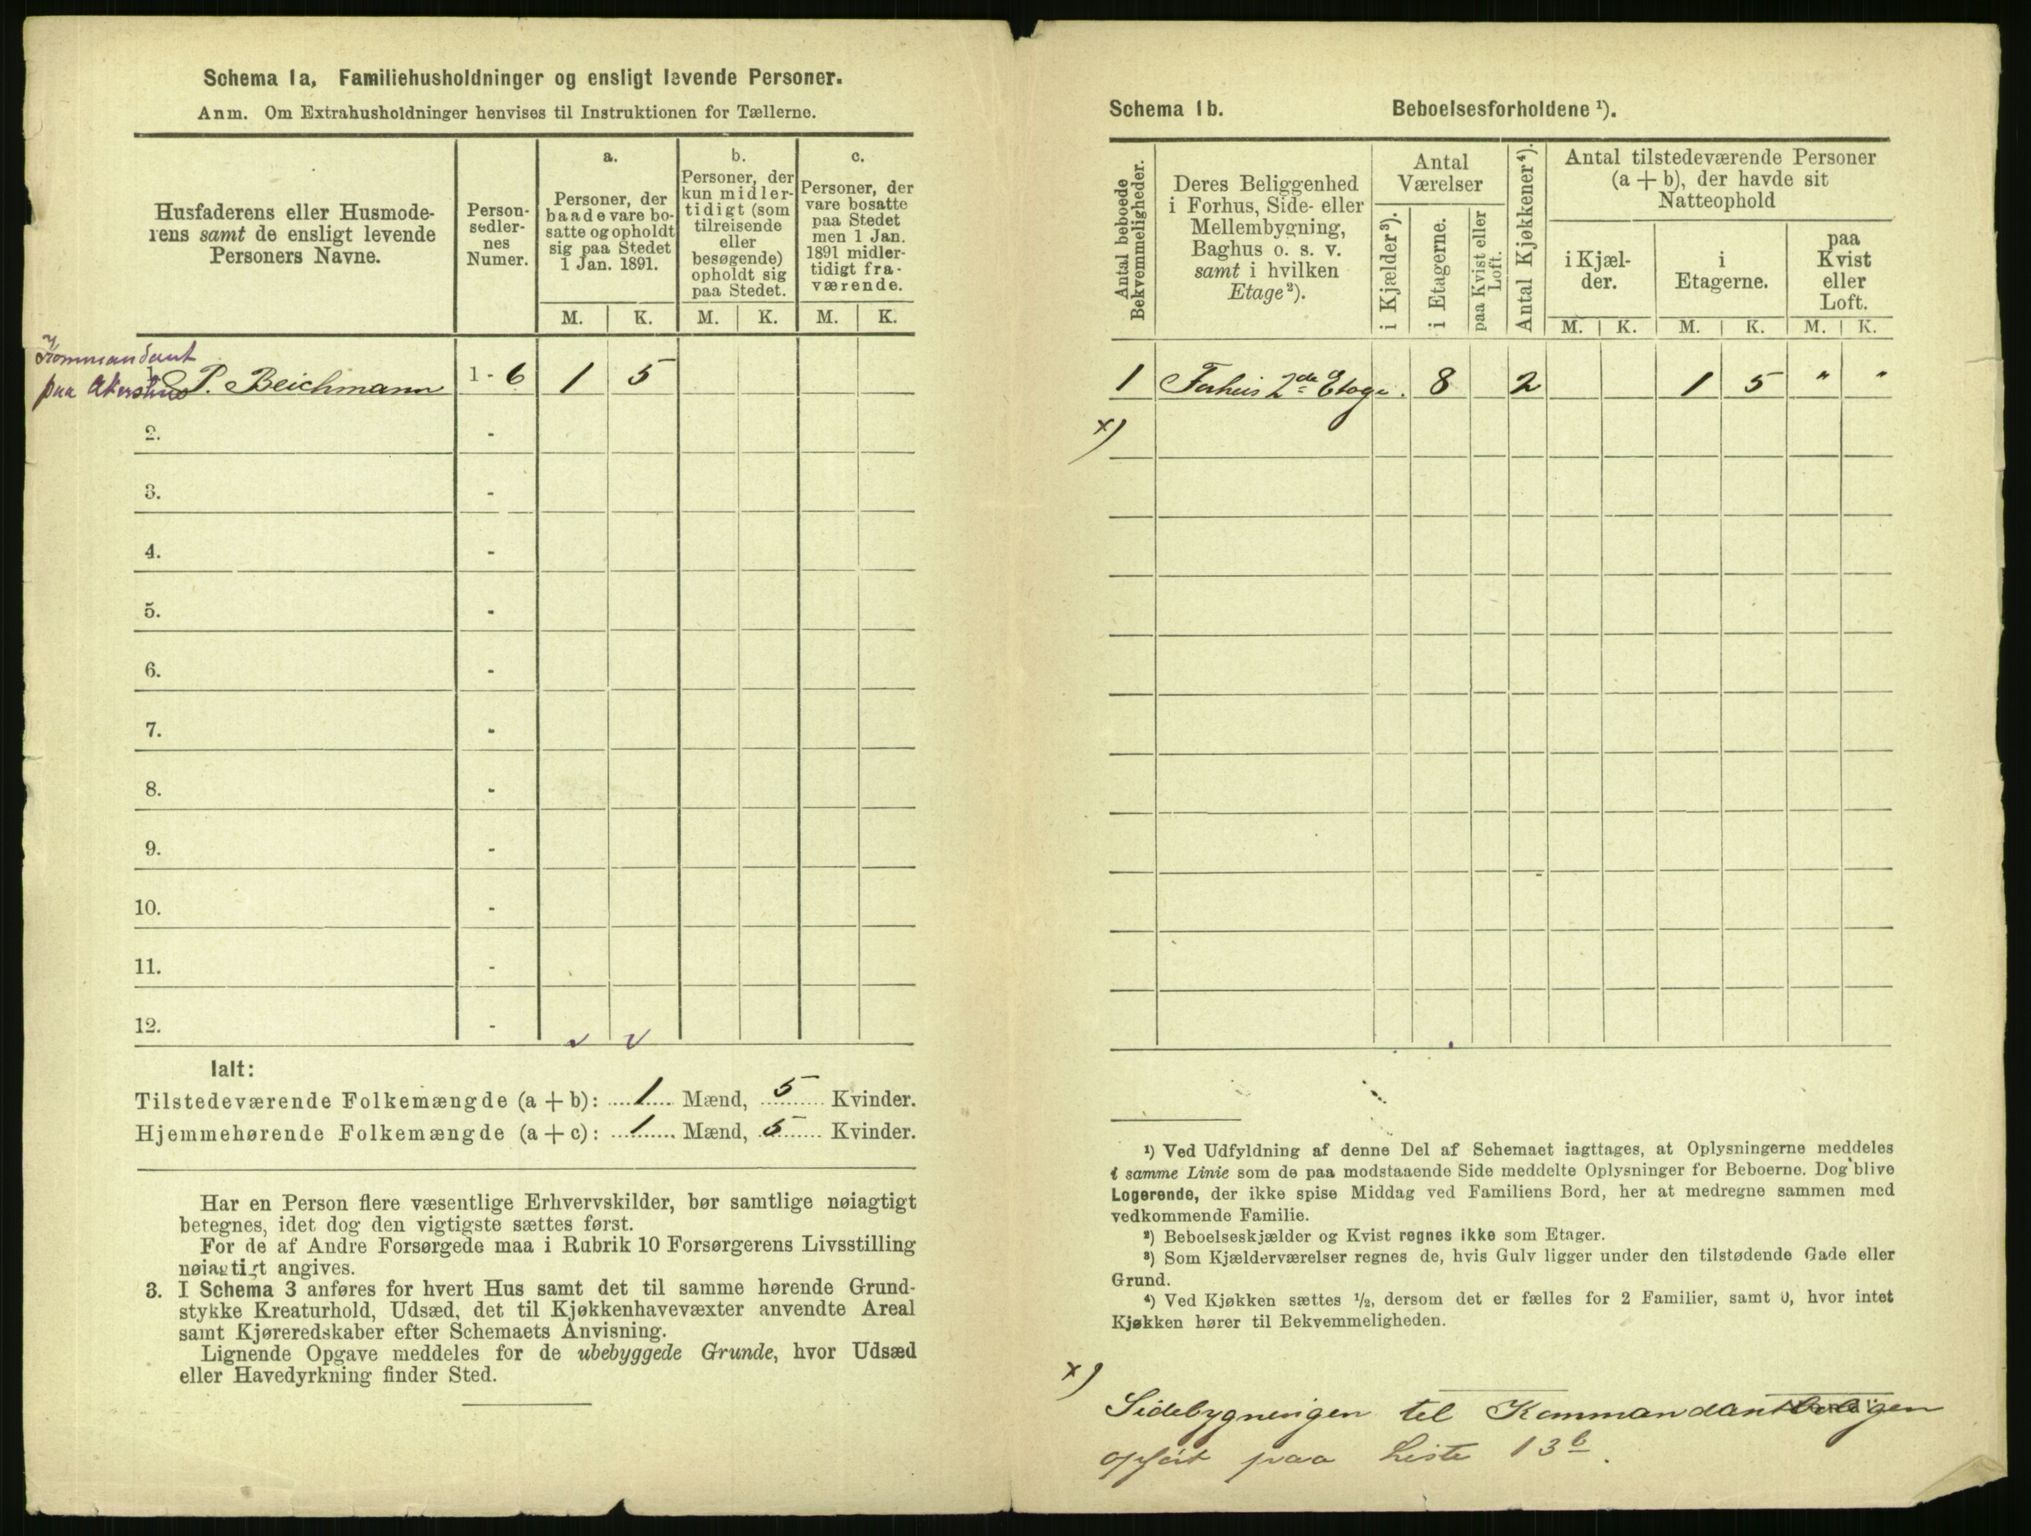 Schema 1a, Familiehusholdninger og ensligt levende Personer.
Anm. Om Extrahusholdninger henvises til Instruktionen for Tællerne.
Husfaderens eller Husmode-
rens samt de ensligt levende
Personers Navne.
Person-
sedler-
nes
Numer.
a.
Personer, der
baade vare bo-
satte og opholdt
sig paa Stedet
1 Jan. 1891.
b.
Personer, der
kun midler-
tidigt (som
tilreisende
eller
besøgende)
opholdt sig
paa Stedet.
c.
Personer, der
vare bosatte
paa Stedet
men 1 Jan.
1891 midler-
tidigt fra-
værende.
M. K. M. K. M. K.
Kommandant
paa Akershus
1. P. Beichmann 1 - 6 1 5
2. -
3. -
4. -
5. -
6. -
7. -
8. -
9. -
10. -
11. -
12. -
Ialt:
Tilstedeværende Folkemængde (a + b): 1 Mænd, 5 Kvinder.
Hjemmehørende Folkemængde (a + c): 1 Mænd, 5 Kvinder.
Har en Person flere væsentlige Erhvervskilder, bør samtlige nøiagtigt
betegnes, idet dog den vigtigste sættes først.
For de af Andre Forsørgede maa i Rubrik 10 Forsørgerens Livsstilling
nøiagtigt angives.
3. I Schema 3 anføres for hvert Hus samt det til samme hørende Grund-
stykke Kreaturhold, Udsæd, det til Kjøkkenhavevæxter anvendte Areal
samt Kjøreredskaber efter Schemaets Anvisning.
Lignende Opgave meddeles for de ubebyggede Grunde, hvor Udsæd
eller Havedyrkning finder Sted.
Schema 1b. Beboelsesforholdene ¹).
Antal beboede
Bekvemmeligheder.
Deres Beliggenhed
i Forhus, Side- eller
Mellembygning,
Baghus o. s. v.
samt i hvilken
Etage²).
Antal
Værelser
i Kjælder³).
i Etagerne.
paa Kvist eller
Loft.
Antal Kjøkkener⁴).
Antal tilstedeværende Personer
(a + b), der havde sit
Natteophold
i Kjæl-
der.
i
Etagerne.
paa
Kvist
eller
Loft.
M. K. M. K. M. K.
1 Forhus 2de Etage. 8 2 1 5 " "
x)
¹) Ved Udfyldning af denne Del af Schemaet iagttages, at Oplysningerne meddeles
i samme Linie som de paa modstaaende Side meddelte Oplysninger for Beboerne. Dog blive
Logerende, der ikke spise Middag ved Familiens Bord, her at medregne sammen med
vedkommende Familie.
²) Beboelseskjælder og Kvist regnes ikke som Etager.
³) Som Kjælderværelser regnes de, hvis Gulv ligger under den tilstødende Gade eller
Grund.
⁴) Ved Kjøkken sættes ½, dersom det er fælles for 2 Familier, samt 0, hvor intet
Kjøkken hører til Bekvemmeligheden.
x)
Sidebygningen til Kommandantboligen
opført paa Liste 13b.